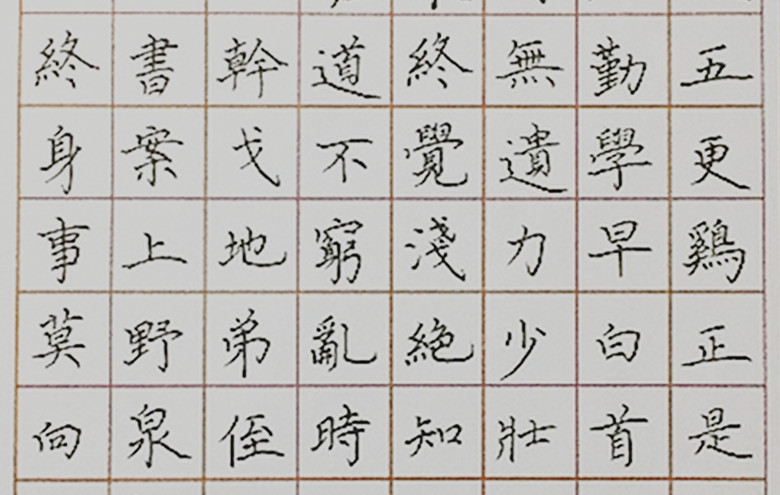 五更鷄正是
勤學早白首
無遺力少壯
終覺淺絕知
道不窮亂時
幹戈地弟侄
書案上野泉
終身事莫向